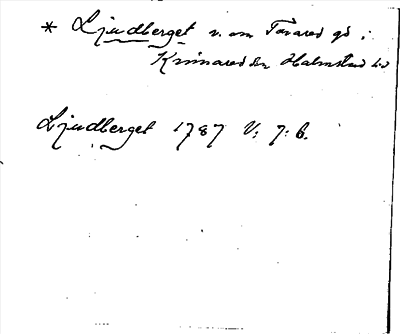 * Ljudberget v. om Tovared gd i
Kinnared sn Halmstad hd
Ljudberget 1787 V: 7: 6.